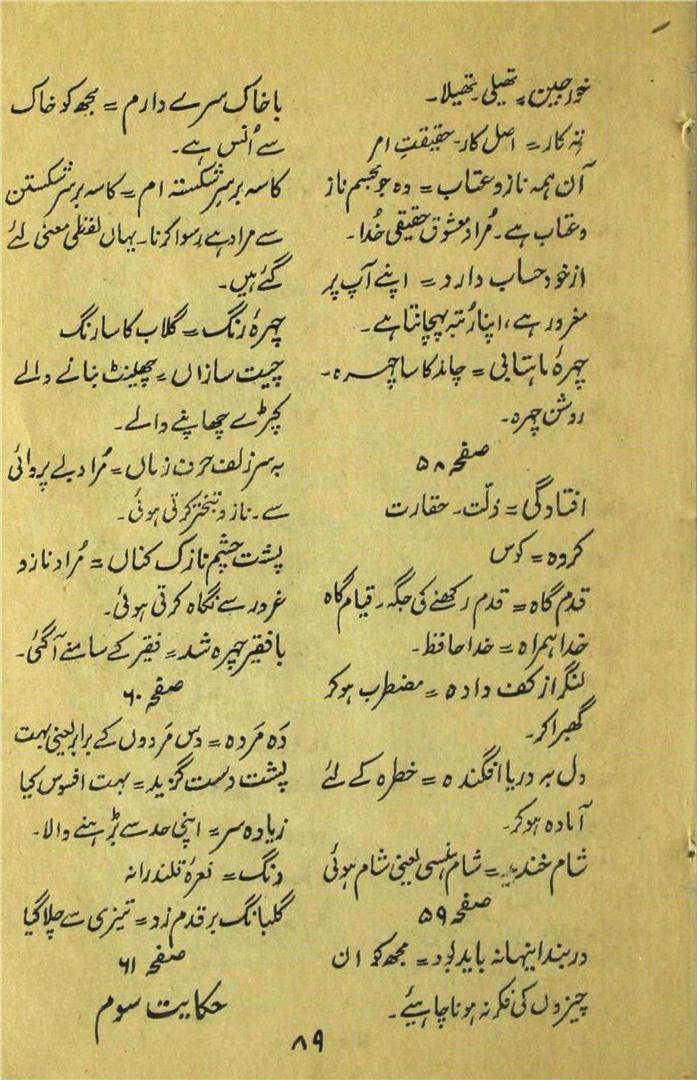 خورجین = تھیلی۔ تھیلا۔
تہِ کار = اصل کار۔ حقیقتِ امر
آن ہمہ ناز و عتاب = وہ جو مجسم ناز
وعتاب ہے۔ مُراد معشوق حقیقی خُدا۔
از خود حساب دارد = اپنے آپ پر
مغرور ہے، اپنا رُتبہ پہچانتا ہے۔
چہرۂ ماہتابی = چاند کا سا چہرہ۔
روشن چہرہ۔
صفحہ ۵۸
افتادگی = ذلّت۔ حقارت
کروہ = کوس
قدم گاہ = قدم رکھنے کی جگہ۔ قیام گاہ
خدا ہمراہ = خدا حافظ۔
لنگر از کف دادہ = مضطرب ہو کر
گھبرا کر۔
دل بہ دریا افگندہ = خطرہ کے لئے
آمادہ ہو کر۔
شام خندید = شام ہنسی یعنی شام ہوئی
صفحہ ۵۹
در بند اینہا نہ باید بود = مجھ کو ان
چیزوں کی فکر نہ ہونا چاہیئے۔
با خاک سرے دارم = مجھ کو خاک
سے اُنس ہے۔
کاسہ بر سرِ شکستہ ام = کاسہ بر سر شکستن
سے مراد ہے رسوا کرنا۔ یہاں لفظی معنی لئے
گئے ہیں۔
چہرۂ رنگ = گلاب کا سا رنگ
چیت سازاں = چھینٹ بنانے والے
کپڑے چھاپنے والے۔
بہ سر زلف حرف زناں = مُراد بے پروائی
سے۔ ناز و تبختر کرتی ہوئی۔
پشت چشم نازک کناں = مُراد ناز و
غرور سے نگاہ کرتی ہوئی۔
با فقیر چہرہ شد = فقیر کے سامنے آ گئی۔
صفحہ ۶۰
دَہ مَردہ = دس مَردوں کے برابر یعنی بہت
پشت دست گزید = بہت افسوس کیا
زیادہ سر = اپنی حد سے بڑہنے والا۔
دنگ = نعرۂ قلندرانہ
گلبانگ بر قدم زد = تیزی سے چلا گیا
صفحہ ۶۱
حکایت سوم
۸۹